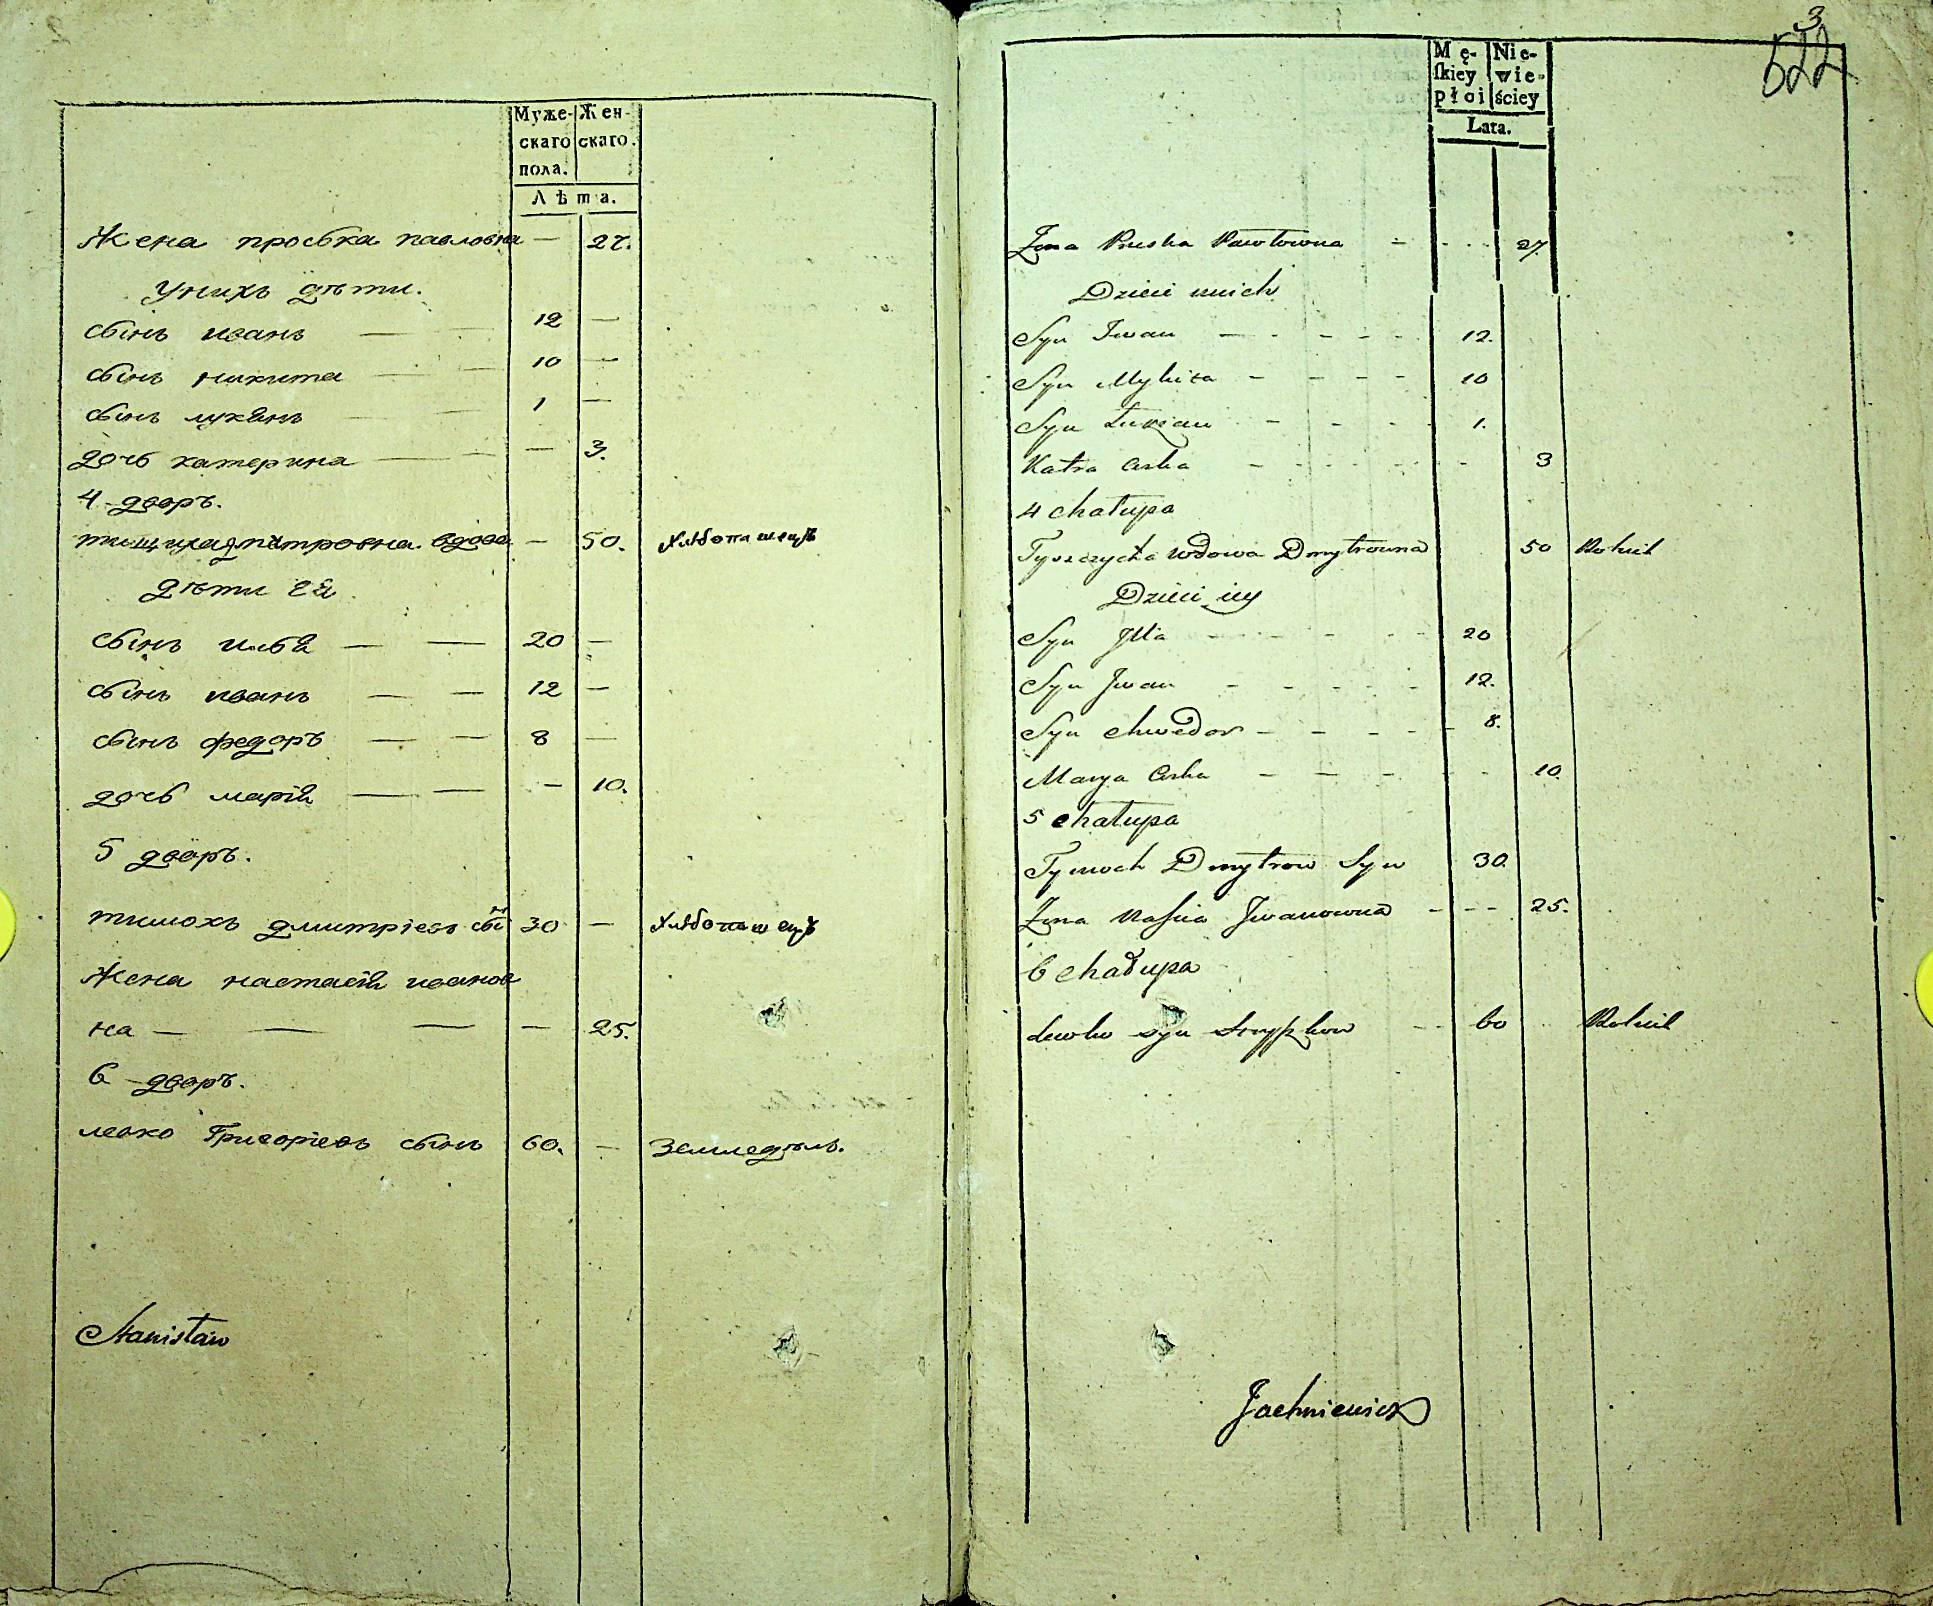 Муже- Жен-
скаго скаго.
пола.
Лѣта.
Жена проська павловна — 27.
Унихъ дѣти.
сынъ иванъ — — 12 —
сынъ никита — — 10 —
сынъ лукянъ — — 1 —
дочь катерина — — — 3.
4 дворъ.
вдова — 50. хлебопашецъ
дѣти ея
сынъ илья — — 20 —
сынъ иванъ — — 12 —
сынъ федоръ — — 8 —
дочь марія — — — 10.
5 дворъ.
тимохъ дмитріевъ сынъ 30 — хлебопашецъ
Жена настасія иванов
на — — — — 25.
6 дворъ.
левко Григоріевъ сынъ 60. — Земледѣль.
Stanisław
3
522
Mę- Nie-
skiey wie-
płci ściey
Lata.
Żona Pruska Pawłowna - - - - 27.
Dzieci unich
Syn Iwan — - - - - 12.
Syn Mykita - - - - 10
Syn Łukian - - - - 1.
Katra Curka - - - - - - 3
4 chałupa
Tyszczycha wdowa Dmytrowna 50 Rolnik
Dzieci iey
Syn Illia - - - - 20
Syn Iwan - - - - - 12.
Syn Chwedor - - - - - 8.
Marya Curka - - - - - 10.
5 chałupa
Tymoch Dmytrow Syn 30.
Żona Nastia Iwanowna - - - 25.
6 chałupa
Lewko syn Hryhkow - - 60 Rolnik
Jachniewicz